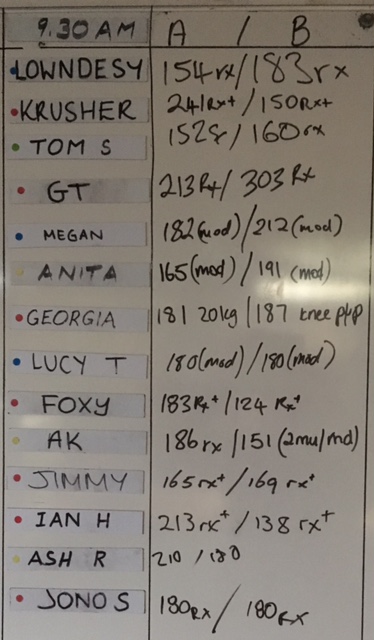 9.30 AM A / B
LOWNDESY 154rx/183rx
KRUSHER 241Rx+/150Rx+
TOM S 152s/160rx
GT 213Rx/303 Rx
MEGAN 182(mod)/212(mod)
ANITA 165(mod)/191 (mod)
GEORGIA 181 20kg/187 knee p/up
LUCY T 180(mod)/180(mod)
FOXY 183Rx+/124 Rx+
AK 186rx/151(2mu/rnd)
JIMMY 165rx+/169 rx+
IAN H 213rx+/138 rx+
ASH R 210 / 180
JONO S 180Rx/ 180Rx